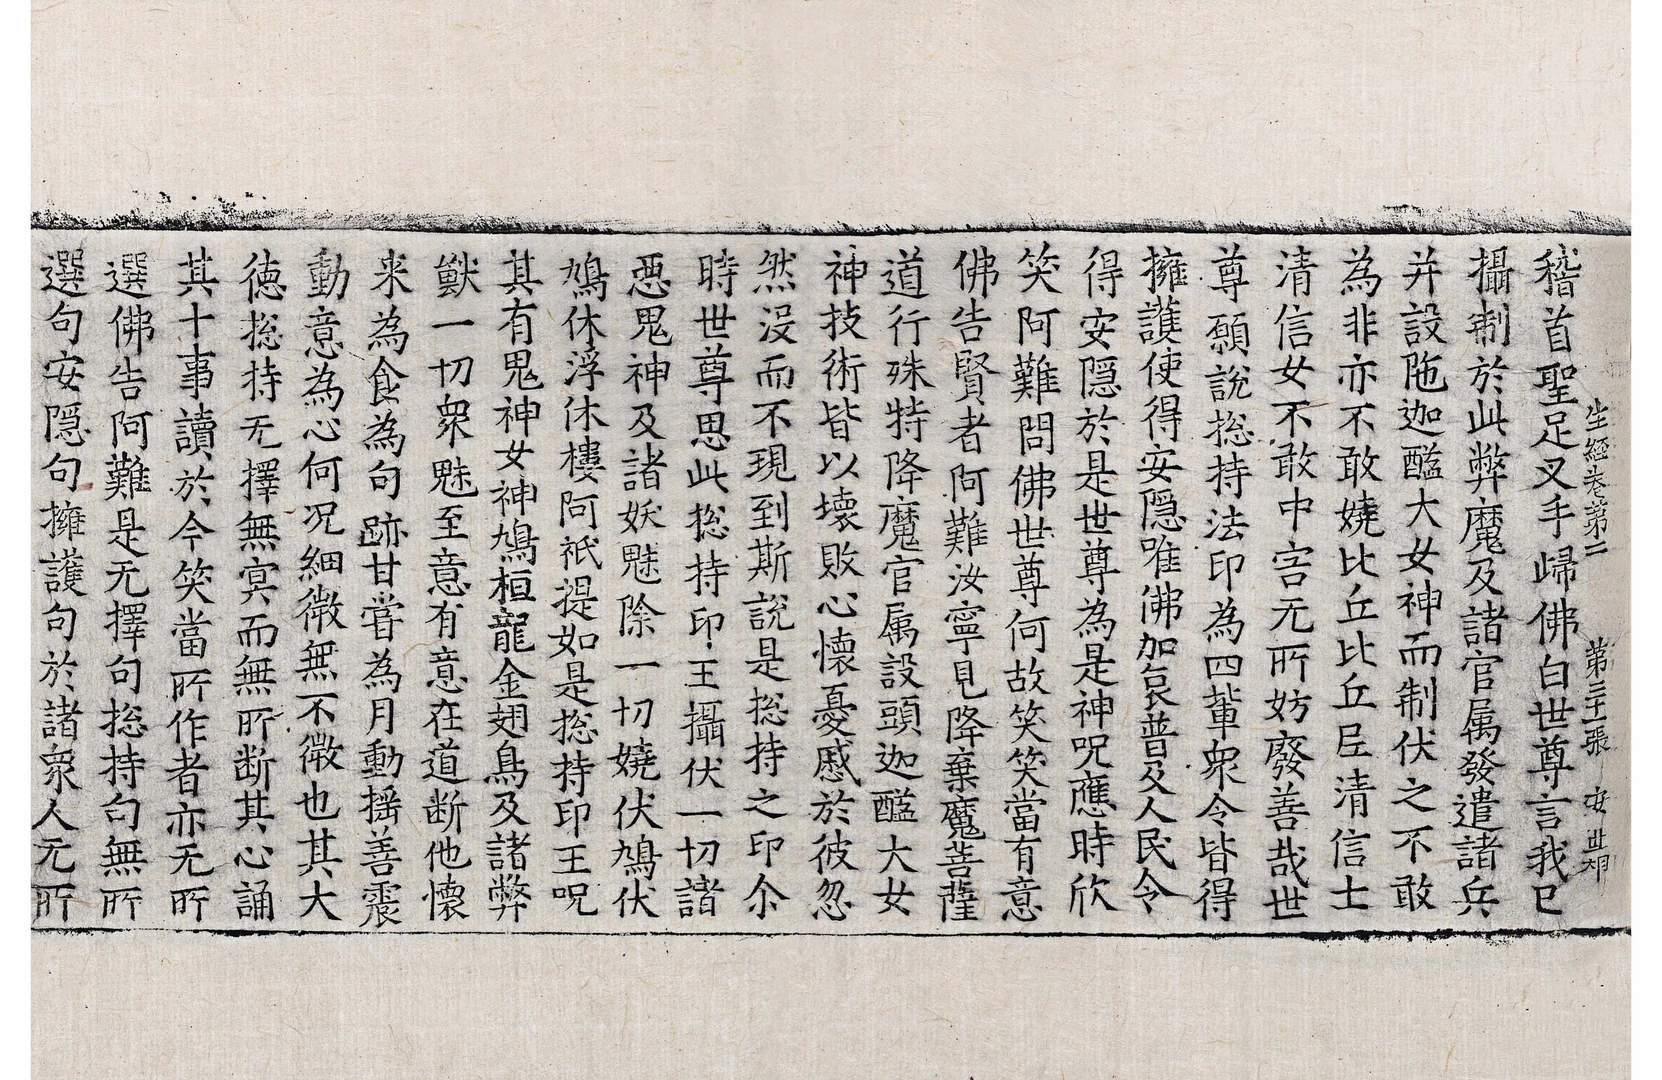 生經卷第二 第二十張 安 世翔
稽首聖足叉手歸佛白世尊言我已
攝制於此弊魔及諸官属發遣諸兵
并設陁迦醯大女神而制伏之不敢
為非亦不敢嬈比丘比丘𡰱清信士
清信女不敢中害无所妨廢善哉世
尊願說捴持法印為四輩衆令皆得
擁護使得安隱唯佛加哀普及人民令
得安隱於是世尊為是神呪應時欣
笑阿難問佛世尊何故笑笑當有意
佛告賢者阿難汝寧見降棄魔菩薩
道行殊特降魔官属設頭迦醯大女
神技術皆以壞敗心懷憂慼於彼忽
然沒而不現到斯說是捴持之印尒
時世尊思此捴持印王攝伏一切諸
惡鬼神及諸妖魅除一切嬈伏鳩伏
鳩休浮休樓阿祇提如是捴持印王呪
其有鬼神女神鳩桓龍金翅鳥及諸弊
獸一切衆魅至意有意在道断他懷
来為食為句跡甘甞為月動揺善震
動意為心何况細微無不微也其大
德捴持无擇無㝠而無所断其心誦
其十事讀於今笑當所作者亦无所
選佛告阿難是无擇句捴持句無所
選句安隱句擁護句於諸衆人无所